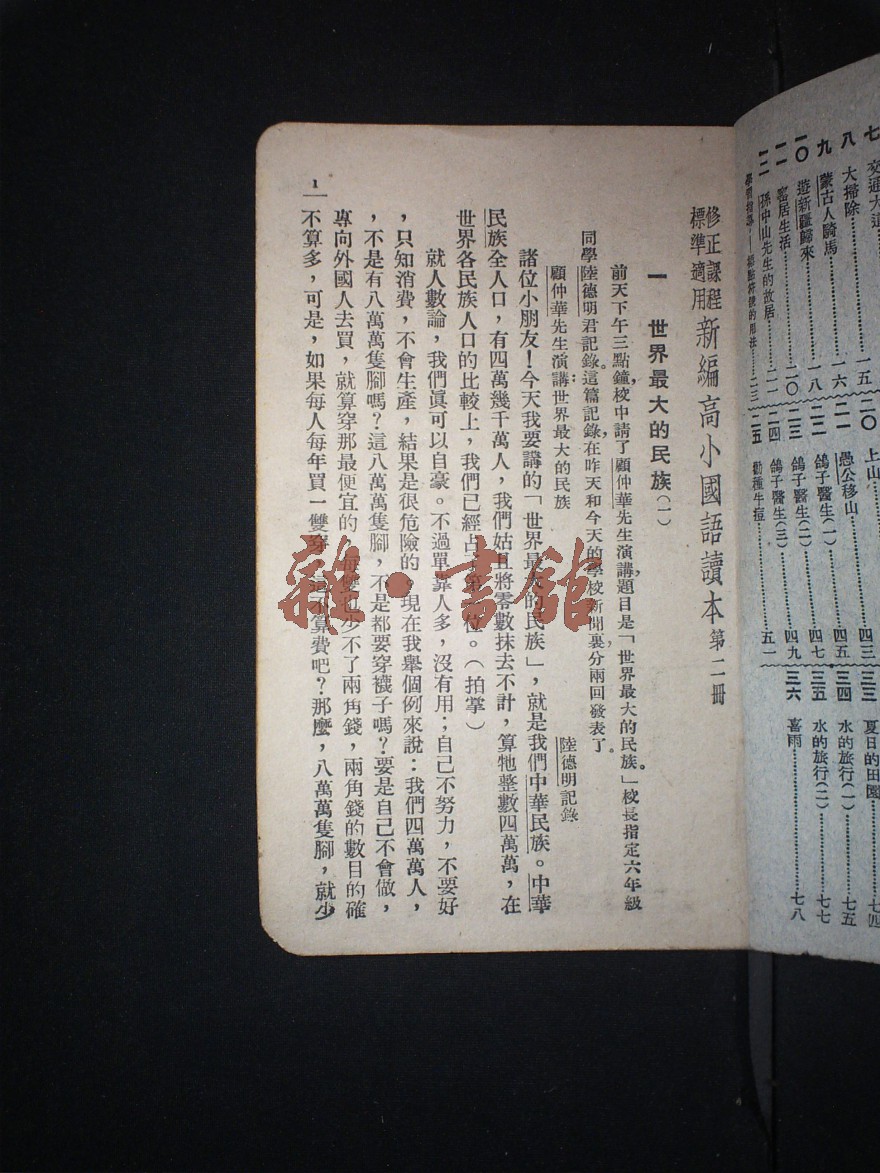 修正課程
標準適用
新編高小國語讀本 第二冊
一 世界最大的民族(一)
前天下午三點鐘,校中請了顧仲華先生演講,題目是「世界最大的民族。」校長指定六年級
同學陸德明君記錄。這篇記錄,在昨天和今天的學校新聞裏,分兩回發表了。
顧仲華先生演講世界最大的民族
陸德明記錄
諸位小朋友!今天我要講的「世界最大的民族」,就是我們中華民族。中華
民族全人口,有四萬幾千萬人,我們姑且將零數抹去不計,算牠整數四萬萬,在
世界各民族人口的比較上,我們已經占了第一位。(拍掌)
就人數論,我們眞可以自豪。不過單靠人多,沒有用;自己不努力,不要好
,只知消費,不會生產,結果是很危險的 現在我舉個例來說:我們四萬萬人,
,不是有八萬萬隻腳嗎?這八萬萬隻腳,不是都要穿襪子嗎?要是自己不會做,
專向外國人去買,就算穿那最便宜的 每雙也少不了兩角錢,兩角錢的數目的確
不算多,可是,如果每人每年買一雙穿 這不算費吧?那麼,八萬萬隻腳,就少
1
七 交通大道 一五
八 大掃除 一六
九 蒙古人騎馬 一八
一〇 遊新疆歸來 二〇
一一 窰居生活 二一
一二 孫中山先生的故居
二三
二〇 上山 四三
二一 愚公移山 四五
二二 鴿子醫生(一) 四七
二三 鴿子醫生(二) 四九
二四 鴿子醫生(三)
二五 勸種牛痘 五一
三三 夏日的田園 七四
三四 水的旅行(一) 七五
三五 水的旅行(二) 七七
三六 喜雨 七八
雜·書館